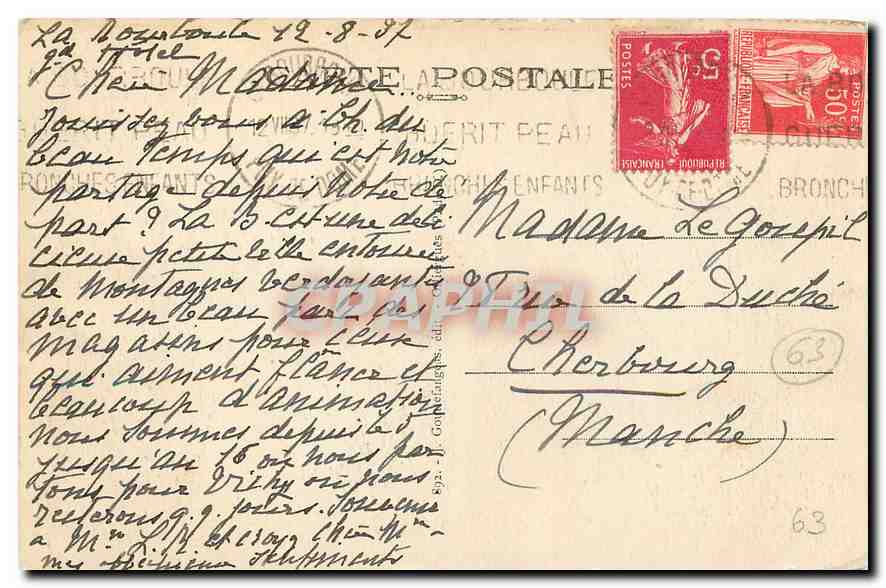 La Bourboule 12-8-37
gd Hotel
Chère Madame
Jouissez vous à Ch. du
beau temps qui est notre
partage depuis notre dé
part? La B est une déli
cieuse petite ville entourée
de montagnes verdoyantes
avec un beau parc des
magasins pour ceux
qui aiment flâner et
beaucoup d'animation
nous sommes depuis le 5
jusqu'au 16 où nous par
tons pour Vichy où nous
resterons q.q. jours. Souvenir
à Mr L. et croyez chère Mme
mes sentiments
CARTE POSTALE
LA BOURBOULE
GUERIT PEAU
BRONCHES ENFANTS
PUY DE DOME
POSTES
5
REPUBLIQUE
FRANÇAISE
REPUBLIQUE FRANÇAISE
POSTES
50
LA B
GUER
BRONCH
Madame Le Goupil
rue de la Duché
Cherbourg
(Manche)
63
63
892. -
CPAPHIL